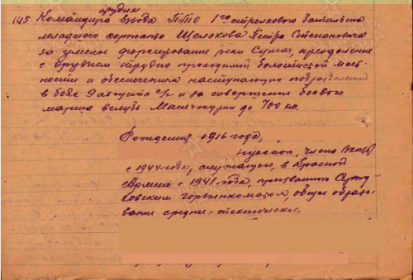 орудия
145 Командира взвода ПТО 1го стрелкового батальона
младшего сержанта Щелокова Петра Степановича
за умелое форсирование реки Сунгач, преодоление
с орудием трудно проходимой болотистой мест-
ности и обеспечением наступающих подразделений
в боях и за совершение боевого
марша вглубь Манчжурии до 700 км.
Рождения 1916 года,
русский, член ВКП(б)
с 1944 года, служащий, в Красной
Армии с 1941 года, призванный
горвоенкоматом, общее образо-
вание среднее-техническое.